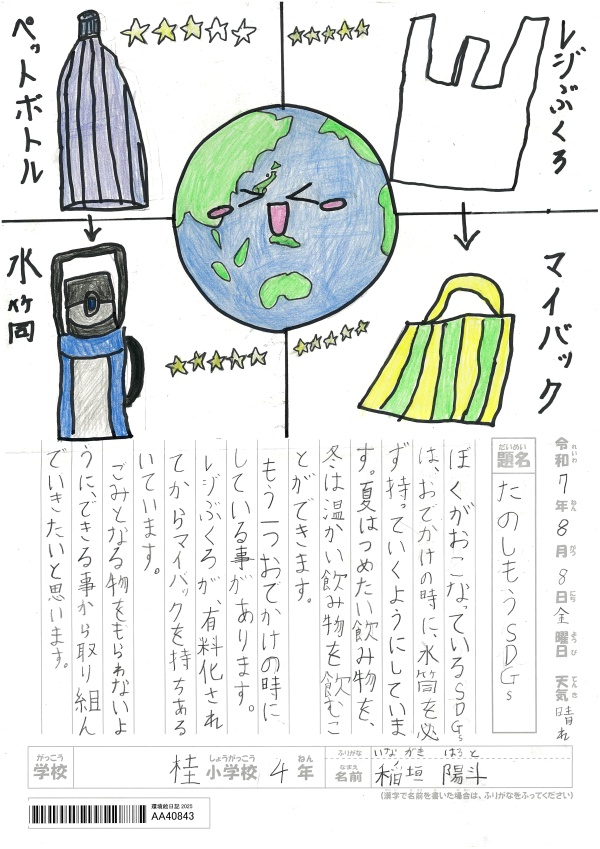 レジぶくろ
マイバック
ペットボトル
水筒
令和7年8月8日金曜日 天気 晴れ
れいわ ねん がつ にち ようび てんき
だいめい
題名
たのしもうSDGs
ぼくがおこなっているSDGs
は、おでかけの時に、水筒を必
ず持っていくようにしていま
す。夏はつめたい飲み物を、
冬は温かい飲み物を飲むこ
とができます。
もう一つおでかけの時に
している事があります。
レジぶくろが、有料化され
てからマイバックを持ちある
いています。
ごみとなる物をもらわないよ
うに、できる事から取り組ん
でいきたいと思います。
がっこう
学校
しょうがっこう ねん
桂小学校4年
ふりがな
いながき はると
なまえ
名前
稲垣 陽斗
(漢字で名前を書いた場合は、ふりがなをふってください)
環境絵日記 2025
AA40843